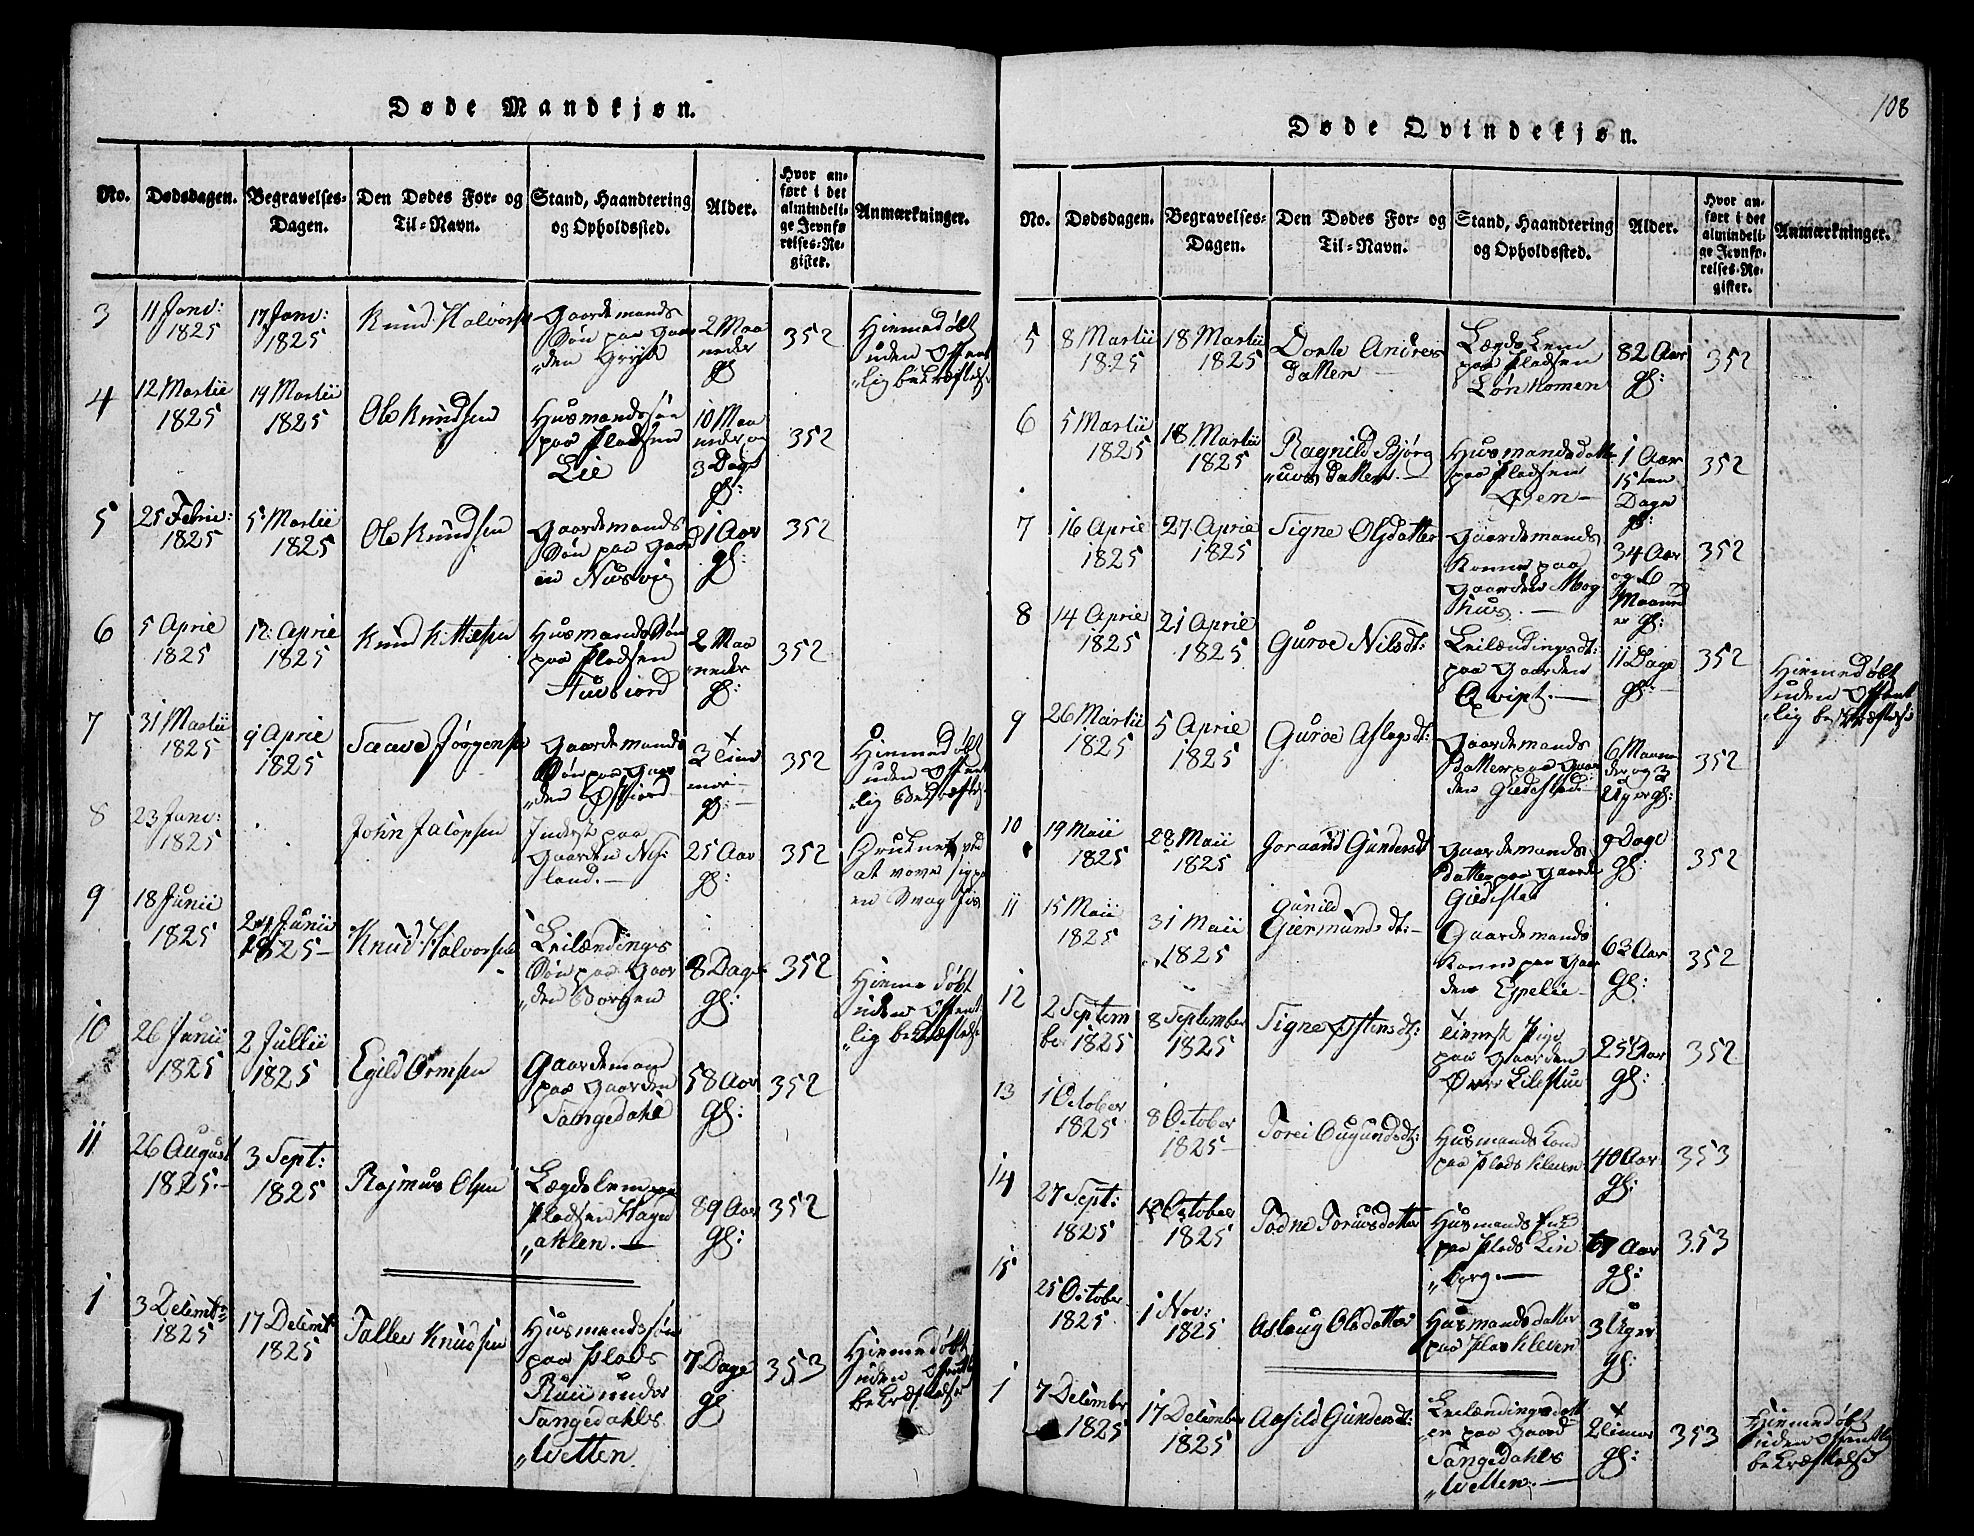 Døde Mandkjøn.
No. Dødsdagen. Begravelses-Dagen. Den Dødes For- og Til-Navn. Stand, Haandtering og Opholdssted. Alder. Hvor anført i det almindelige Jevnførelses-Register. Anmærkninger.
3
11 Janv:
1825
17 Janv:
1825
Knud Halvors
Gaardemands
Søn paa Gaar
2 Maa
neder
gl:
352
Hiemedøbt
uden Offent
lig bekræftels
4
12 Martii
1825
19 Martii
1825
Ole Knudsen
Husmandssøn
paa Pladsen
Lie
10 Maa
neder og
3 Dage
gl:
352
5
25 Febr:
1825
5 Martii
1825
Ole Knudsen
Gaardemands
Søn paa Gaar
en Nusvig
1 Aar
gl:
352
6
5 Aprie
1825
12 Aprie
1825
Knud Kittelsen
Husmands Søn
paa Pladsen
2 Maa
neder
gl:
352
7
31 Martii
1825
9 Aprie
1825
Taave Jørgense
Gaardemands
Søn paa Gaar
den
3 Tim
mer
gl:
352
Hiemedøbt
uden Offent
lig Bekræftels
8
23 Janv:
1825
John Jacopsen
Inderst paa
Gaarden Nis
land.
25 Aar
gl:
352
Druknet ved
at vove sig paa
en svag Iis
9
18 Junii
1825
24 Junii
1825
Knud Halvorsen
Leilændings
Søn paa Gaar
den Borgen
8 Dage
gl:
352
Hiemedøbt
uden Offent
lig bekræftels
10
26 Junii
1825
2 Julii
1825
Egild Ormsen
Gaardemand
paa Gaarden
Tangedahl
58 Aar
gl:
352
11
26 August
1825
3 Sept:
1825
Rasmus Olsen
Lægdslem paa
Pladsen Hage
89 Aar
gl:
352
1
3 Decembr
1825
17 Decemb
1825
Tallev Knudsen
Husmandssøn
paa Plads
under
Tangedahls
Wetten
7 Dage
gl
353
Hiemedøbt
uden Offentl
bekræftelse
108
Døde Qvindekjøn.
No. Dødsdagen. Begravelses-Dagen. Den Dødes For- og Til-Navn. Stand, Haandtering og Opholdssted. Alder. Hvor anført i det almindelige Jevnførelses-Register. Anmærkninger.
5
8 Martii
1825
18 Martii
1825
Dorte Andres
datter
Lægdslem
paa Pladsen
82 Aar
gl:
352
6
5 Martii
1825
18 Martii
1825
Ragnild Bjørg
uvs datter
Husmandsdatte
paa Pladsen
Øien
1 Aar
15ten
Dage
gl:
352
7
16 Aprie
1825
27 Aprie
1825
Signe Olsdatter
Gaardemands
Konne paa
Gaarden Mog
hus.
34 Aar
og 6
Maaned
er gl:
352
8
14 Aprie
1825
21 Aprie
1825
Guroe Nilsdt:
Leilændingsdt:
paa Gaarden
Qvipt.
11 Dage
gl:
352
Hiemedøbt
uden Offent
lig bekræftelse
9
26 Martii
1825
5 Aprie
1825
Guroe Aslagsdt:
Gaardemands
datter paa Gaar
den Gjedested
6 Maane
der og 3
Uger gl:
352
10
19 Maii
1825
28 Maii
1825
Joraand Gundersdt
Gaardemands
datter paa Gaarde
Gjedested
9 Dage
gl:
352
11
15 Maii
1825
31 Maii
1825
Gunild
Giermundsdt:
Gaardemands
Konne paa Gaar
den Espelie
63 Aar
gl:
352
12
2 Septem
ber 1825
8 September
1825
Signe Østensdt:
Tienest Pige
paa Gaarden
Øvre Lilestue
25 Aar
gl:
352
13
1 October
1825
8 October
1825
Torei Ougundsdt:
Husmands Kone
paa Plads Kleven
40 Aar
gl:
353
14
27 Sept:
1825
12 October
1825
Todne Torusdatter
Husmands Enke
paa Plads Lin
borg.
67 Aar
gl:
353
15
25 October
1825
1 Nov:
1825
Aslaug Olsdatter
Husmandsdatter
paa Plas Kleven
3 Uger
gl:
1
7 December
1825
17 December
1825
Aasild Gundersdt:
Leilændings datt
er paa Gaard
Tangedahls
Wetten.
2 timer
gl:
353
Hiemedøbt
uden Offentlig
bekræftelse